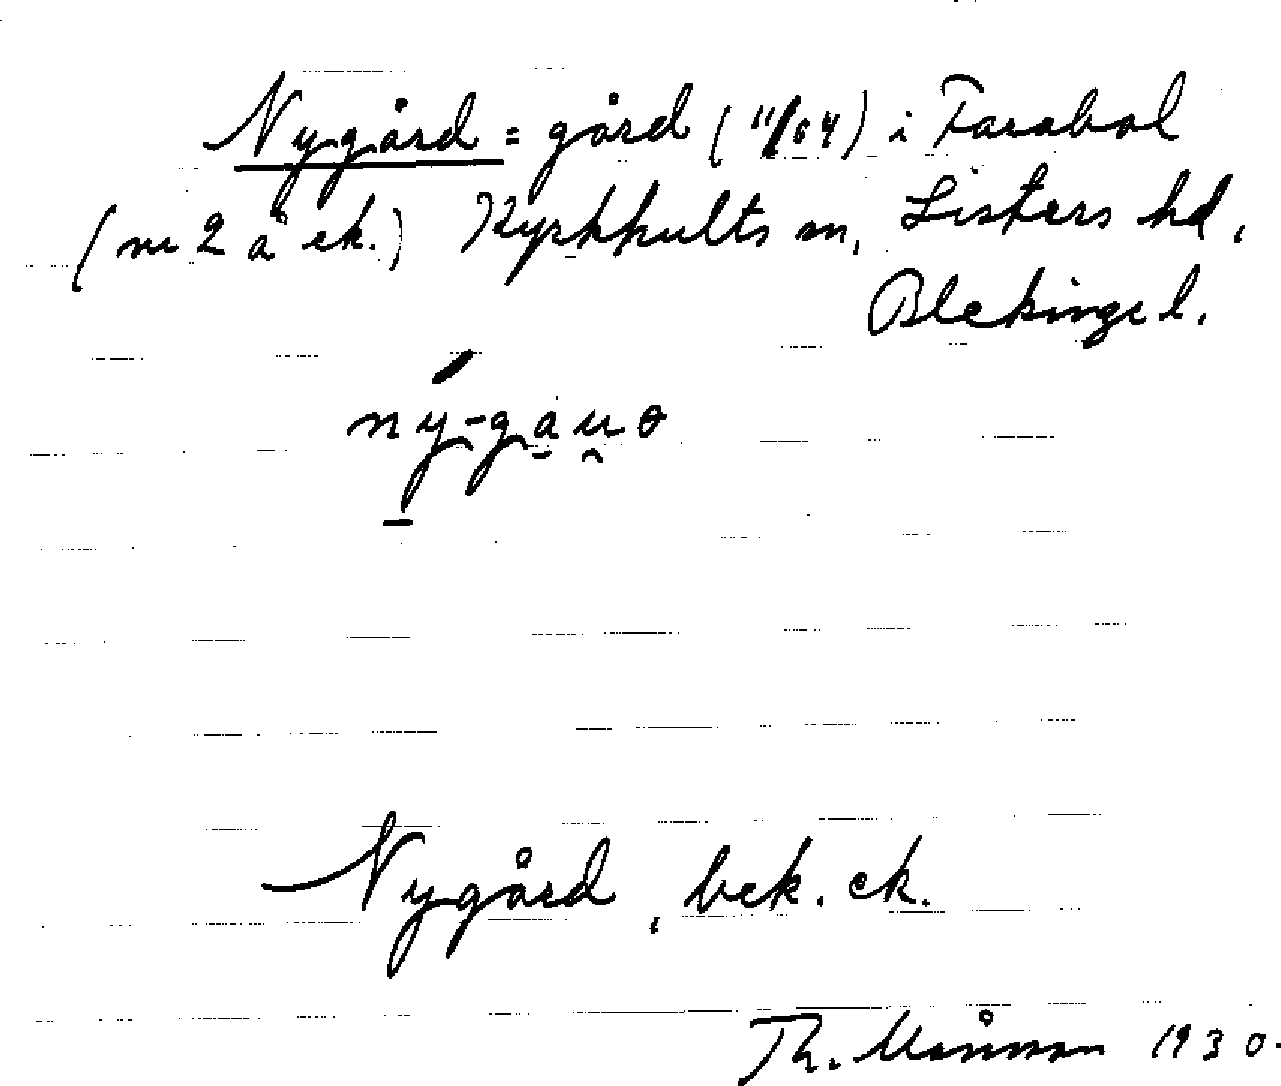 Nygård = gård (11/64) i Farabol
(nr 2 å ek.) Kyrkhults sn, Listers hd,
Blekinge l.
Nygård, bek. ek.
Th. 1930.